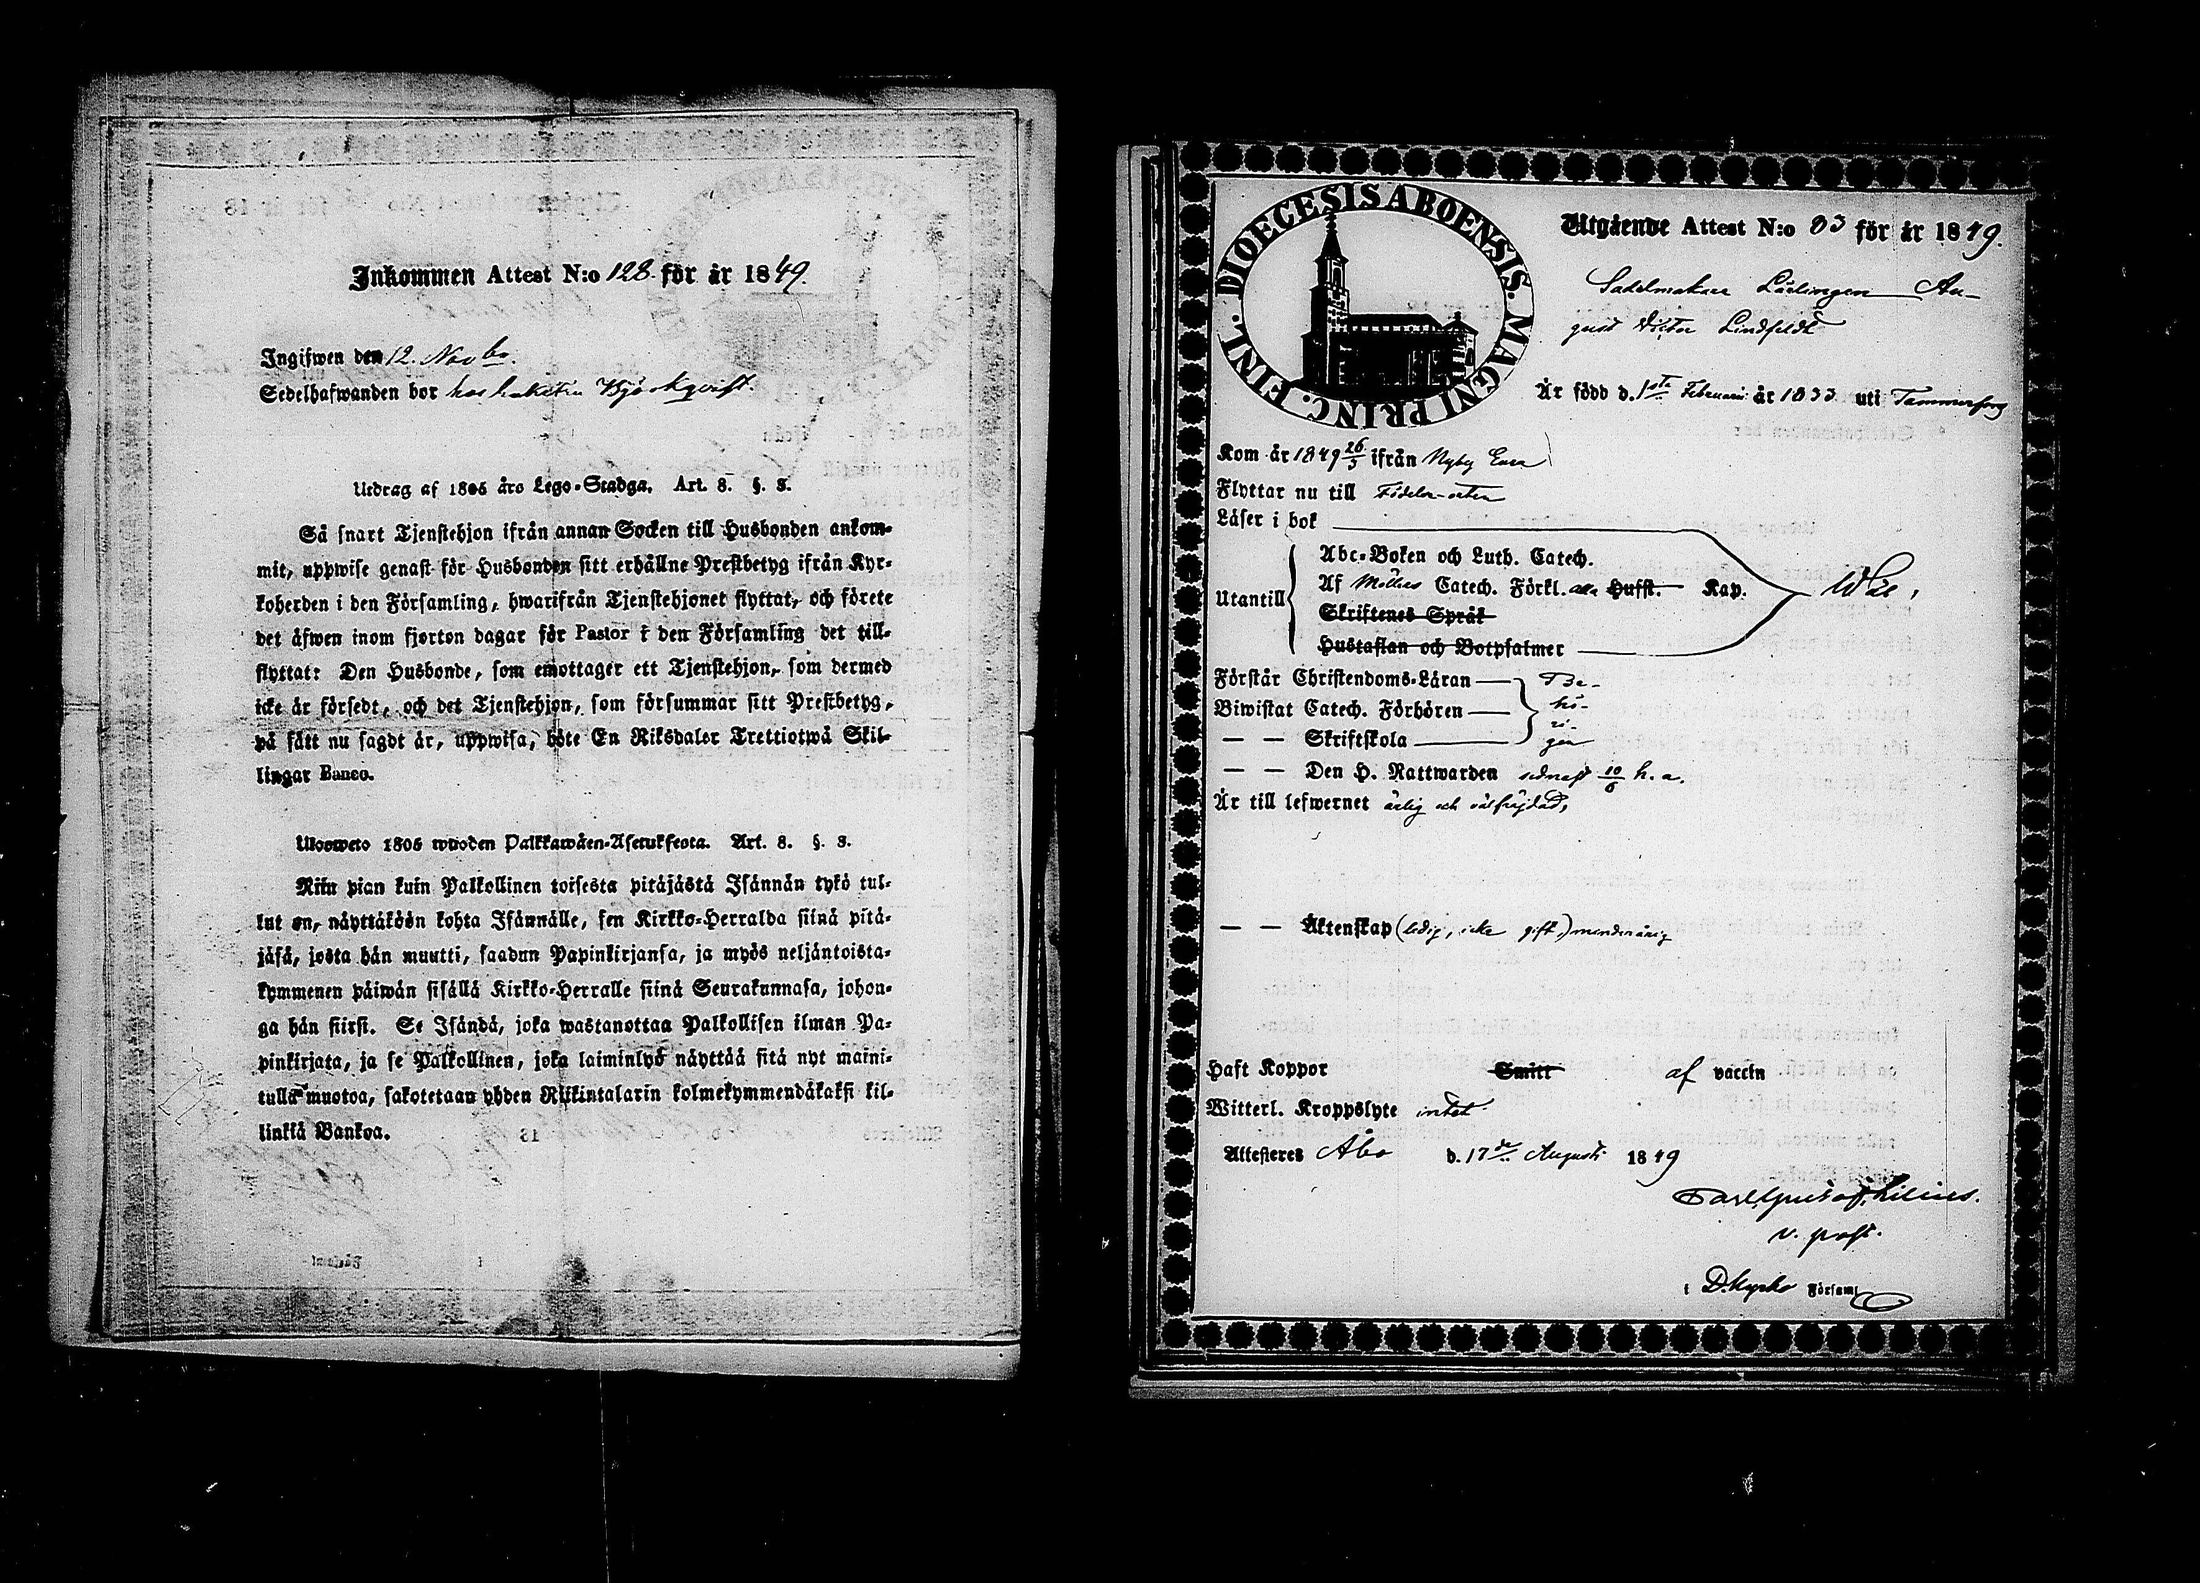 Inkommen Attest N:o 128. för år 1849.
Ingifwen den 12. Novbr.
Sedelhafwanden bor hos Björkqvist.
Utdrag af 1805 års Lego-Stadga. Art. 8. §. 8.
Så snart Tjenstehjon ifrån annan Socken till Husbonden ankom-
mit, uppwise genast för Husbonden sitt erhållne Prestbetyg ifrån Kyr-
koherden i den Församling, hwarifrån Tjenstehjonet flyttat, och förete
det äfwen inom fjorton dagar för Pastor i den Församling det till-
flyttat: Den Husbonde, som emottager ett Tjenstehjon, som dermed
icke är försedt, och det Tjenstehjon, som försummar sitt Prestbetyg,
på sätt nu sagdt är, uppwisa, böte En Riksdaler Trettiotwå Skil-
lingar Banco.
Ulosweto 1805 wuoden Palkkawäen-Asetuksesta. Art. 8. §. 8.
Niin pian kuin Palkollinen toisesta pitäjästä Isännän tykö tul-
lut on, näyttäköön kohta Isännälle, sen Kirkko-Herralda siinä pitä-
jäsä, josta hän muutti, saadun Papinkirjansa, ja myös neljäntoista-
kymmenen päiwän sisällä Kirkko-Herralle siinä Seurakunnasa, johon-
ga hän siirsi. Se Isändä, joka wastanottaa Palkollisen ilman Pa-
pinkirjata, ja se Palkollinen, joka laiminlyö näyttää sitä nyt maini-
tulla muotoa, sakotetaan yhden Riikintalarin kolmekymmendäkaksi kil-
linkiä Bankoa.
DIOECESIS ABOENSIS. MAGNI PRINC. FINL.
Utgående Attest N:o 83 för år 1849.
Sadelmakare Lärlingen Au-
gust Victor Lindfeldt
Är född d. 1sta Februari år 1833 uti Tammerfors
Kom år 1849 26/3 ifrån Nyby
Flyttar nu till Födelse-orten
Läser i bok
Abc-Boken och Luth. Catech.
Utantill Af Möllers Catech. Förkl. alla Hufst. Kap. Wäl,
Skriftenes Språk
Hustaflan och Botpsalmer
Förstår Christendoms-Läran Be-
Biwistat Catech. Förhören hö-
ri-
— — Skriftskola gen
— — Den H. Nattwarden sednast 10/6 h. a.
Är till lefwernet ärlig och välfrejdad,
— — Äktenskap (ledig, icke gift,) minderårig
Haft Koppor Smitt af vaccin
Witterl. Kroppslyte intet
Attesteres Åbo d. 17de Augusti 1849
Carl Gustaf Lilius.
v. past.
i D. kyrko Församl.